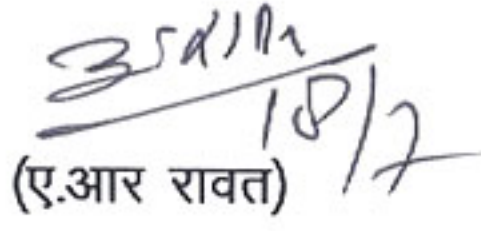 18/7
(ए.आर रावत)